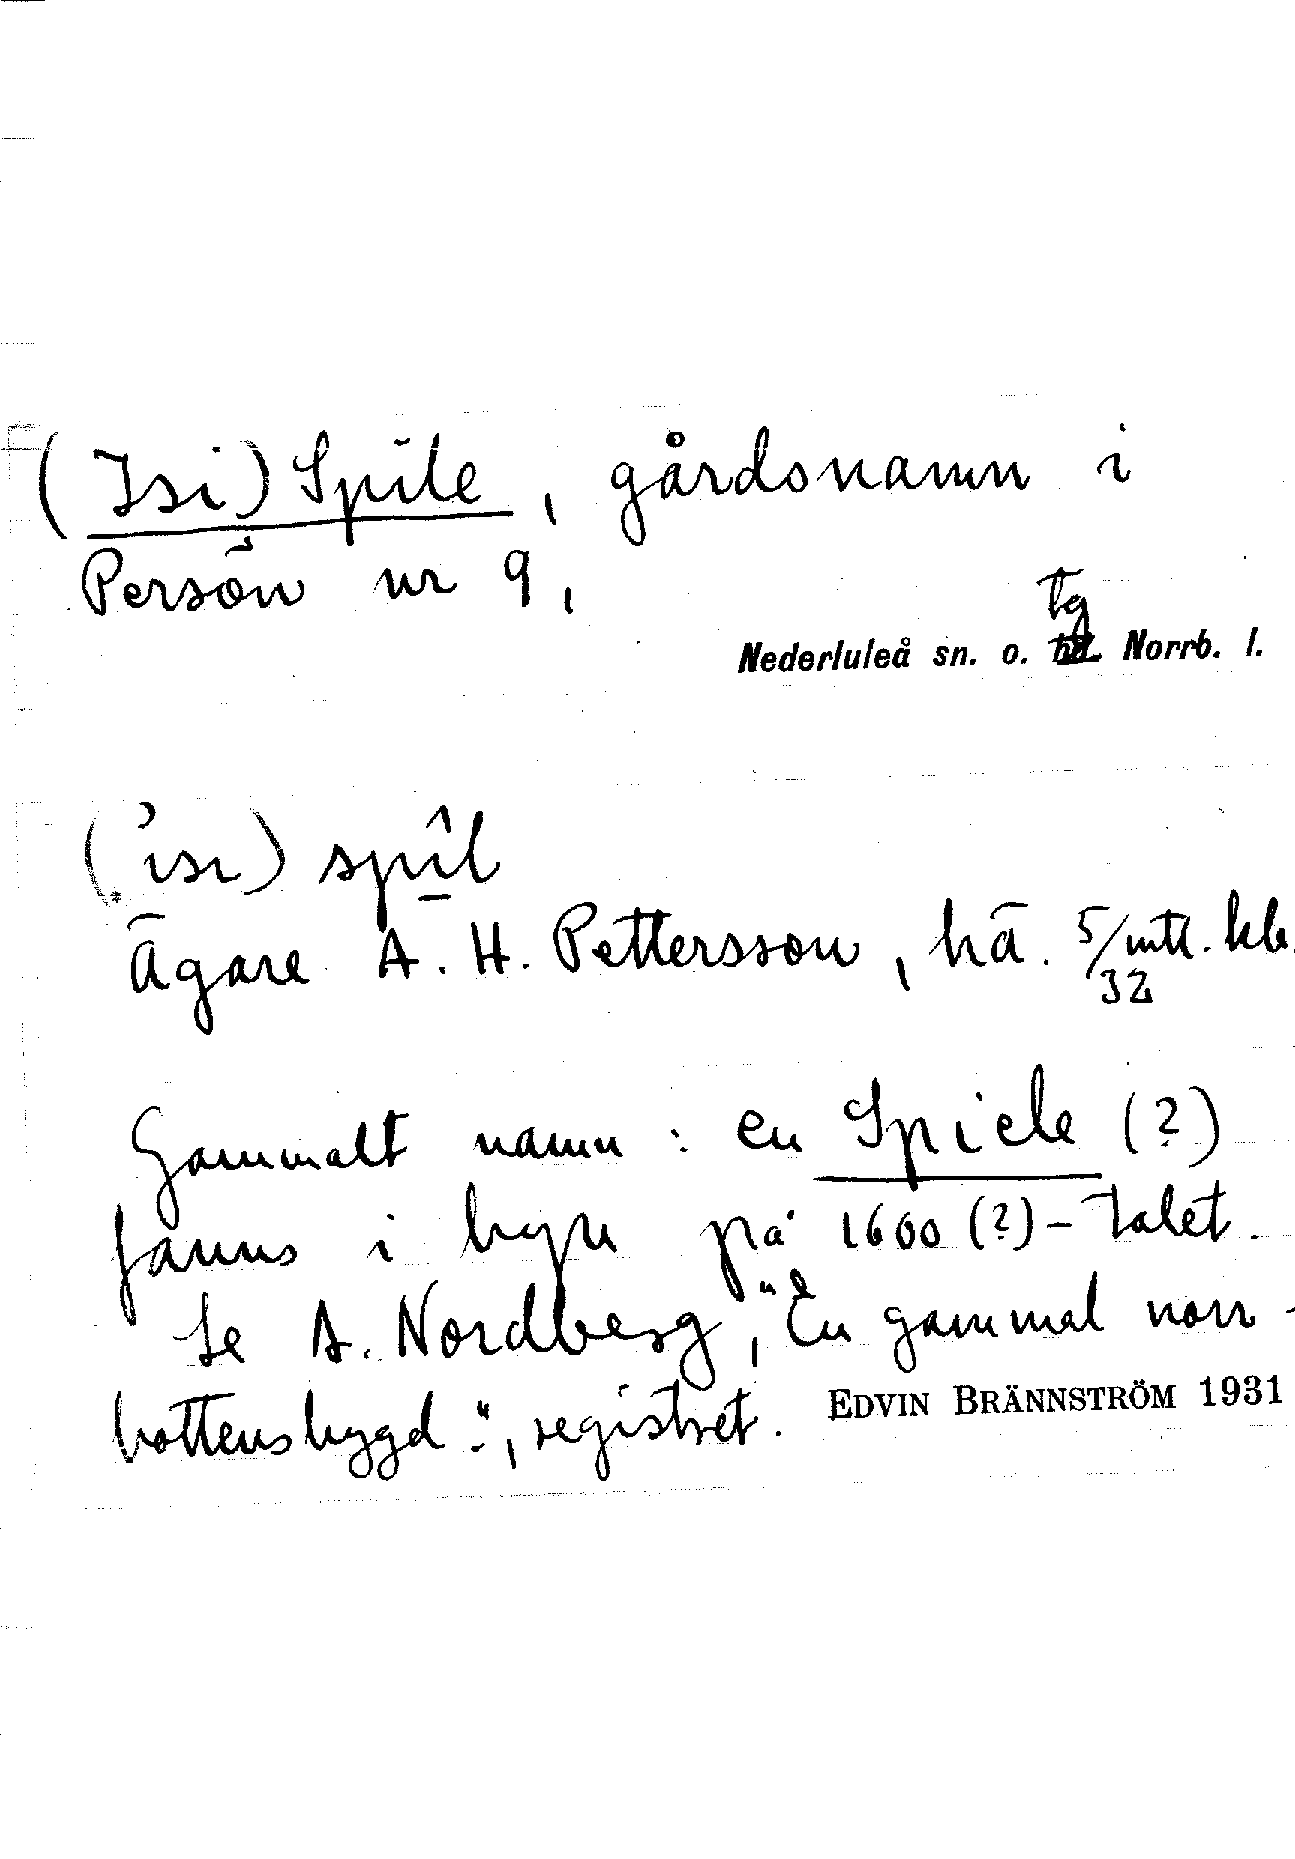 (Isi) Spíle, gårdsnamn i
Persön nr 9,
tg
Nederluleå sn. o. Norrb. l.
('isı) spîl
Ägare A. H. Pettersson, hä. 5/32 mtl. kb.
Gammalt namn: en Spiele (?)
fanns i byn på 1600 (?)-talet.
Se A. Nordberg, "En gammal norr-
bottensbygd", registret.
EDVIN BRÄNNSTRÖM 1931